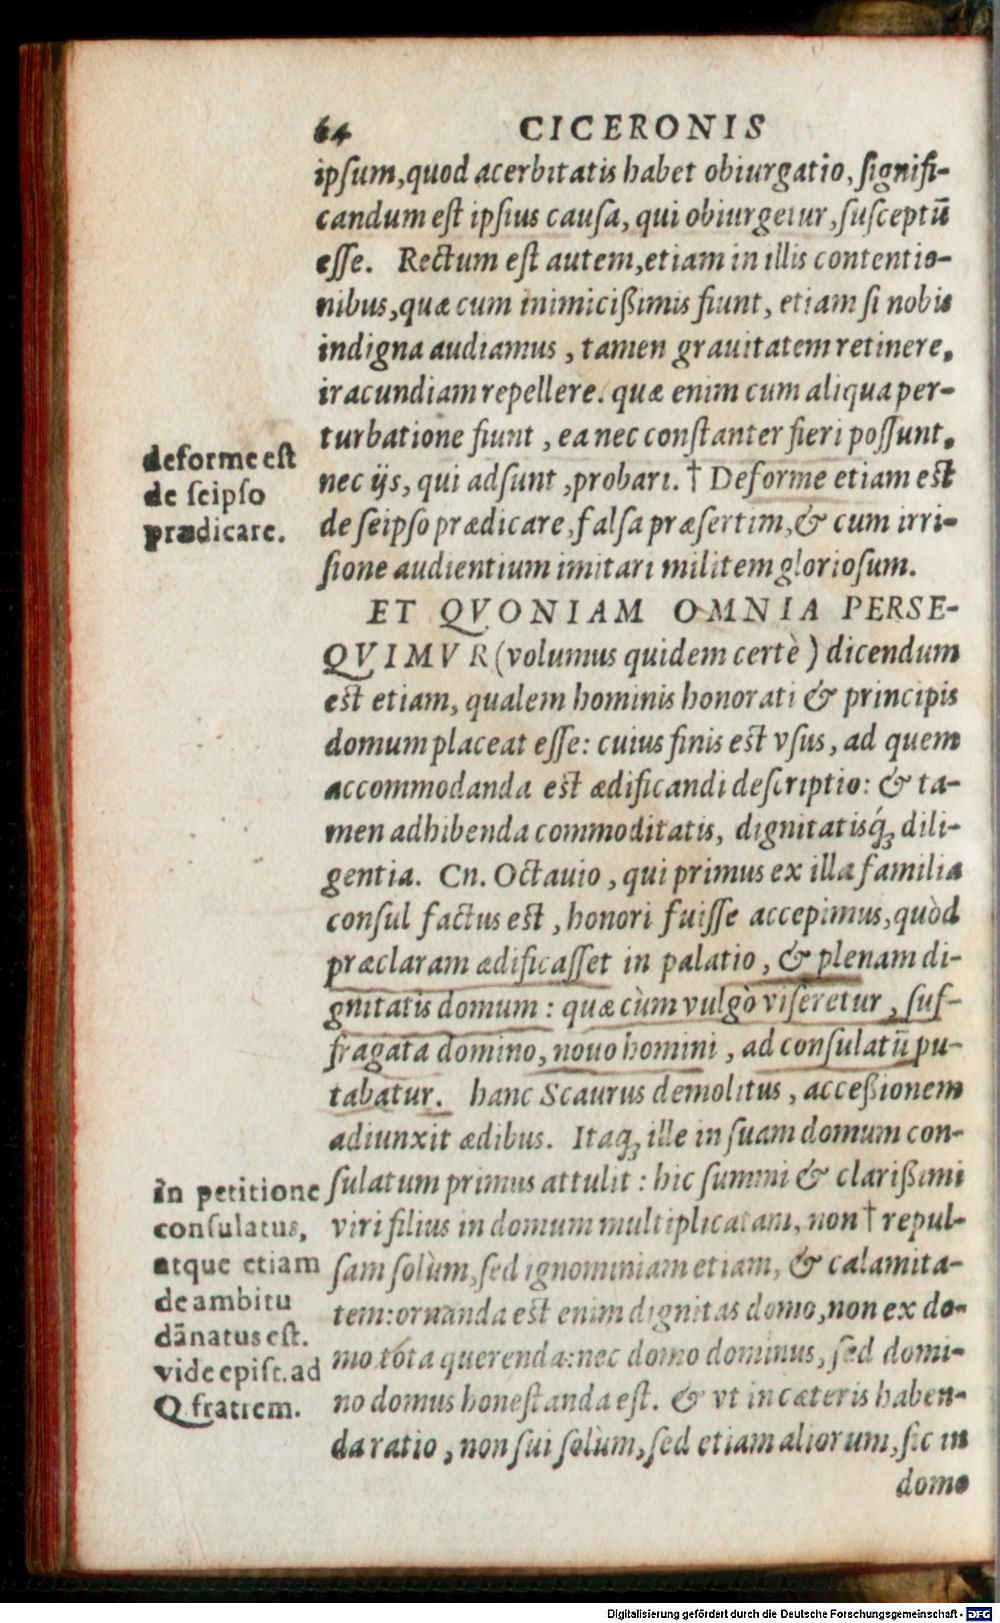 64 CICERONIS
ipsum, quod acerbitatis habet obiurgatio, signifi-
candum est ipsius causa, qui obiurgetur, susceptū
esse. Rectum est autem, etiam in illis contentio-
nibus, quæ cum inimicißimis fiunt, etiam si nobis
indigna audiamus, tamen grauitatem retinere,
iracundiam repellere. quæ enim cum aliqua per-
turbatione fiunt, ea nec constanter fieri possunt,
nec ijs, qui adsunt, probari. † Deforme etiam est
de seipso prædicare, falsa præsertim, & cum irri-
sione audientium imitari militem gloriosum.
deforme est
de seipso
prædicare.
ET QVONIAM OMNIA PERSE-
QVIMVR (volumus quidem certè) dicendum
est etiam, qualem hominis honorati & principis
domum placeat esse: cuius finis est vsus, ad quem
accommodanda est ædificandi descriptio: & ta-
men adhibenda commoditatis, dignitatisq́; dili-
gentia. Cn. Octauio, qui primus ex illa familia
consul factus est, honori fuisse accepimus, quòd
præclaram ædificasset in palatio, & plenam di-
gnitatis domum: quæ cùm vulgò viseretur, suf-
fragata domino, nouo homini, ad consulatū pu-
tabatur. hanc Scaurus demolitus, acceßionem
adiunxit ædibus. Itaq; ille in suam domum con-
sulatum primus attulit: hic summi & clarißimi
viri filius in domum multiplicatam, non † repul-
sam solùm, sed ignominiam etiam, & calamita-
tem: ornanda est enim dignitas domo, non ex do-
mo tota querenda: nec domo dominus, sed domi-
no domus honestanda est. & vt in cæteris haben-
da ratio, non sui solùm, sed etiam aliorum, sic in
domo
in petitione
consulatus,
atque etiam
de ambitu
dānatus est.
vide epist. ad
Q. fratrem.
Digitalisierung gefördert durch die Deutsche Forschungsgemeinschaft - DFG